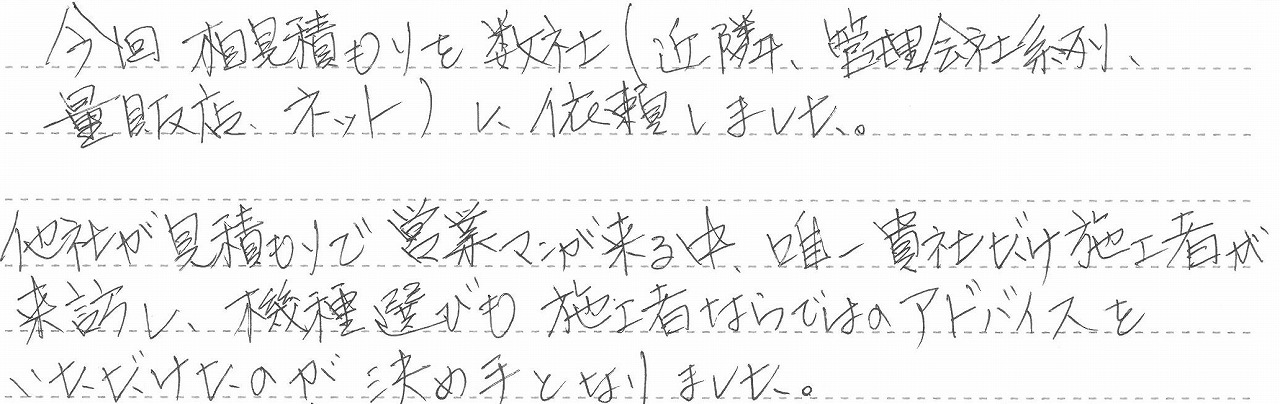 今回 相見積もりを 数社(近隣、管理会社系列、
量販店、ネット)に 依頼しました。
他社が見積もりで営業マンが来る中、唯一貴社だけ施工者が
来訪し、機種選びも施工者ならではのアドバイスを
いただけたのが 決め手となりました。